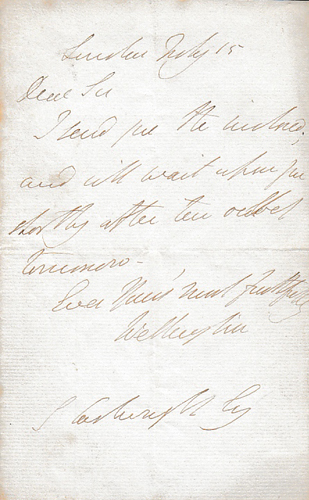 London July 15
Dear Sir
I send you the inclosed;
and will wait upon you
shortly after ten oClock
tomorrow -
Ever Yours most faithfully
Wellington
Cartwright Esq